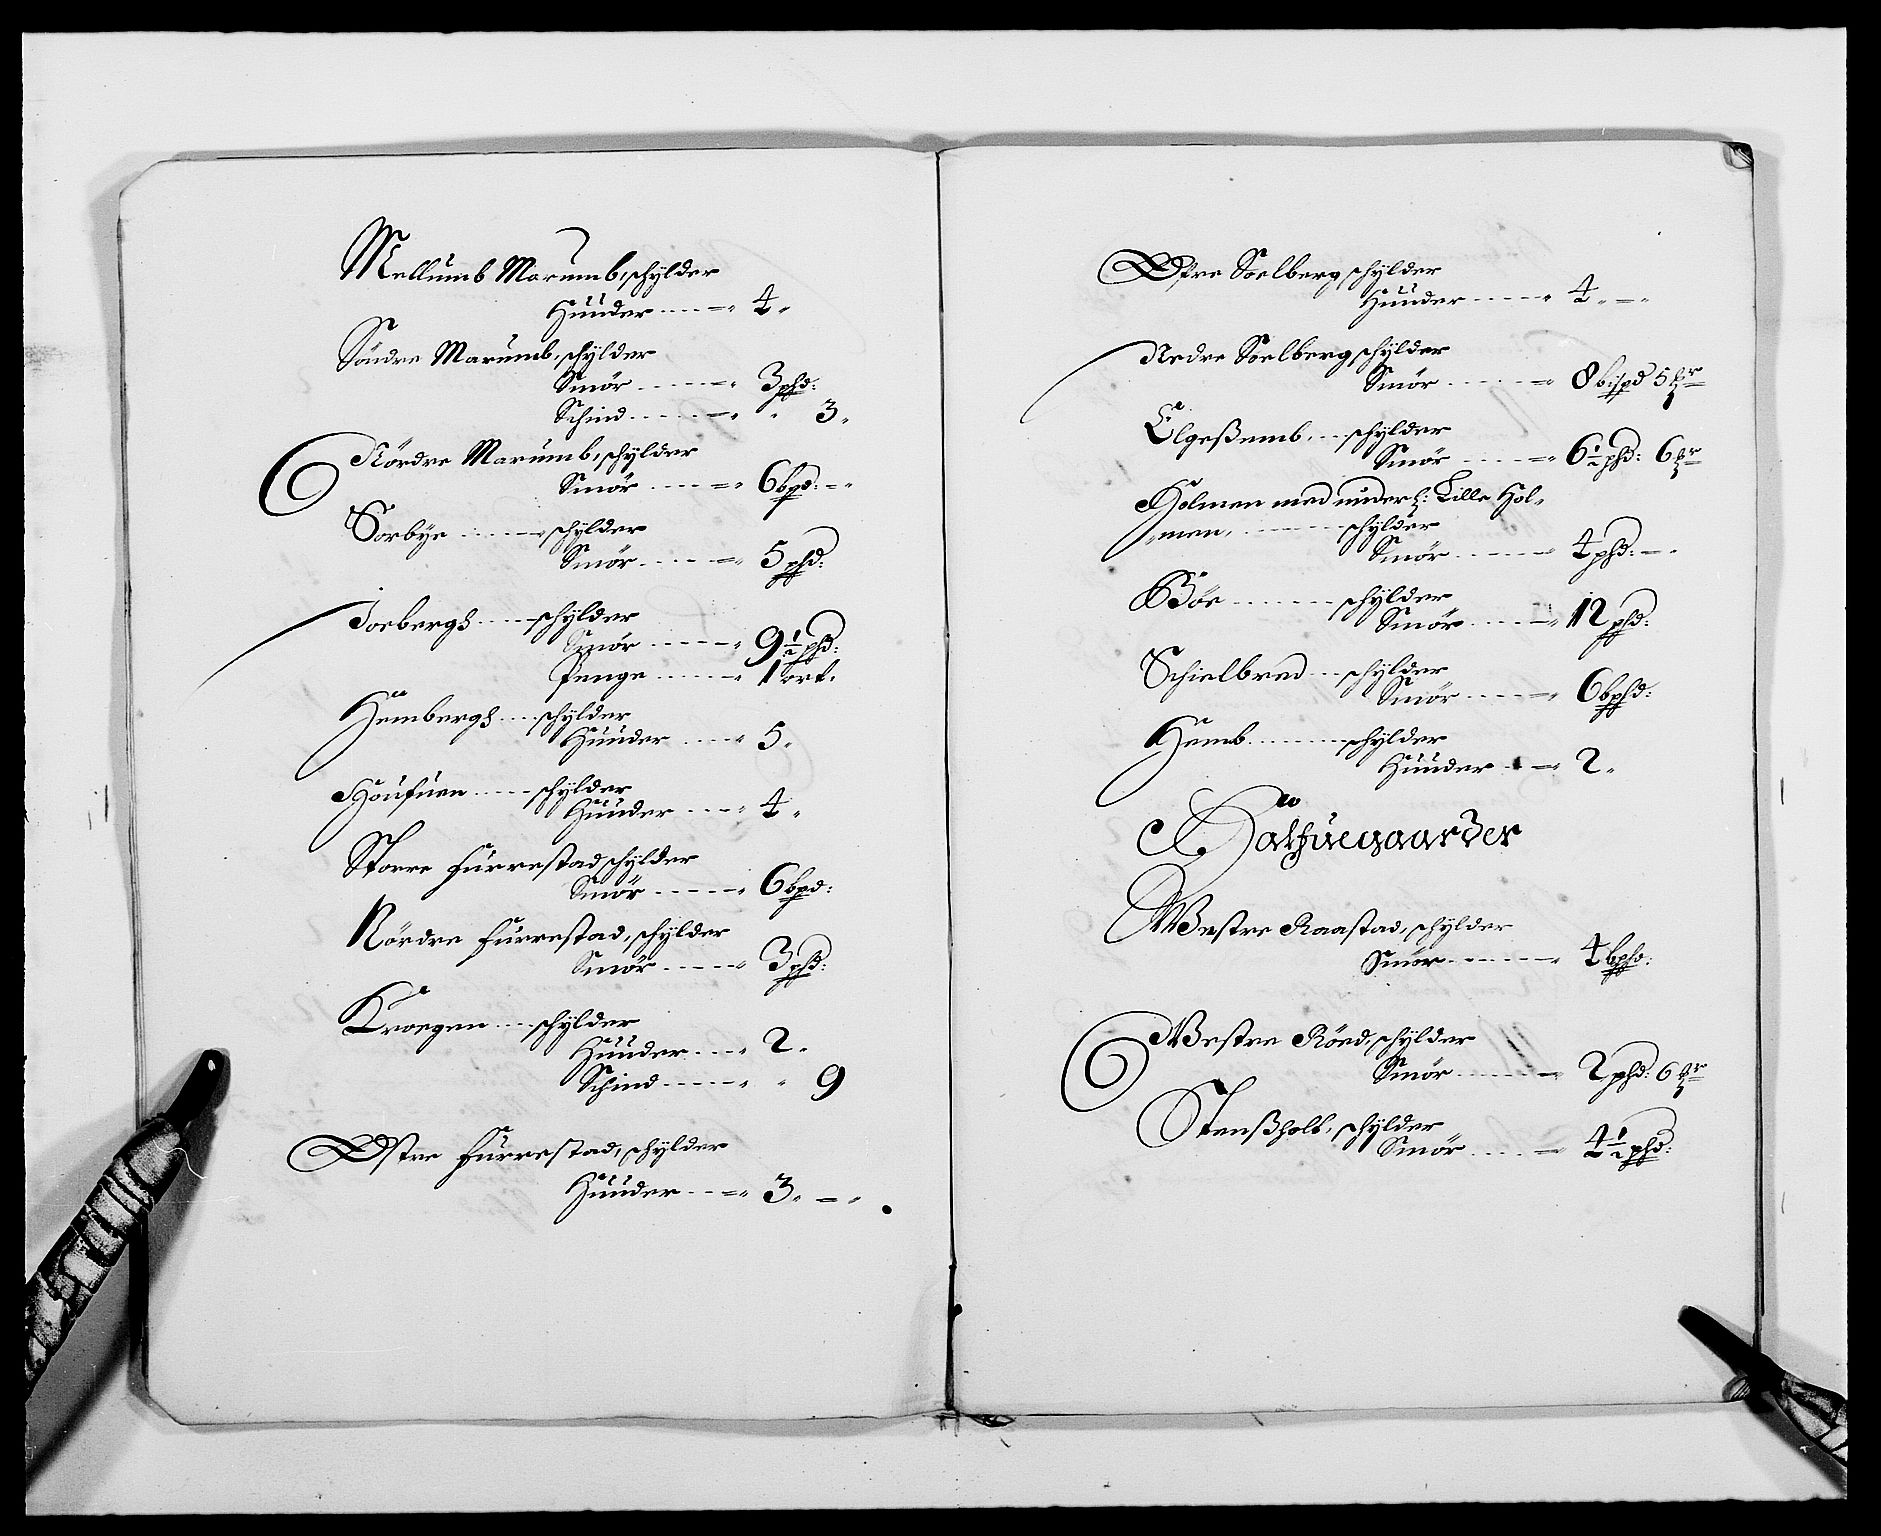 Mellumb Marumb, schylder
Huuder 4
Söndre Marumb, schylder
Smör 3 phd:
Schind 3
Nördre Marumb, schylder
Smör 6 bpd:
Sorbye schylder
Smör 5 phd:
Joebergh schylder
Smör 9½ phd:
Penge 1 ort.
Hembergh schylder
Huuder 5
Houfuen schylder
Huuder 4
Storre Furrestad, schylder
Smör 6 bpd:
Nördre Furrestad, schylder
Smör 3 phd:
Kroegen schylder
Huuder 2
Schind 9
Østre Furrestad, schylder
Huuder 3
Øfre Soelberg schylder
Huuder 4
Nedre Soelberg schylder
Smör 8 bispd 5 mkr
Elgeßemb, schylder
Smör 6½ phd: 6 mkr
Holmen med underl: Lille Hol-
-men, schylder
Smör 4 phd:
Böe schylder
Smör 12 phd:
Schielbred schylder
Smör 6 bphd:
Hemb schylder
Huuder 2
Halfuegaarder
Westre Raastad, schylder
Smör 4 bphd:
Westre Röed, schylder
Smör 2 phd: 6 mkr
Stenßholt, schylder
Smör 4½ phd: